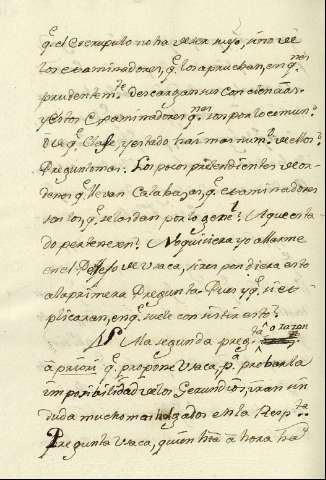 q.e el escrupulo no ha de ser suyo, sino de
los examinadores, q.e los aprueban, en q.nes
prudentem.te descargan sus conciencias.
y estos Examinadores q.nes son por lo comun?
De q.e Clase, y estado hai mas num.o de ellos?
Preguntomas. Los pocos pretendientes de or-
denes q.e llevan Calabazas, q.e examinadores
son los, q.e se las dan por lo gene.l? A que esta-
do pertenecen? No quisiera yo allarme
en el de Vaca, si respondiera esto
a la primera Pregunta. Pues y q.e si ex-
plicaran, en q.e suele consistir esto?
A la segunda preg.ta o razon
à priori q.e propone Vaca, p.a probar la
imposibilidad de los Gerundios, iran sin
duda mucho mas holgados en la Resp.ta
Pregunta Vaca, quien hta ahora ha